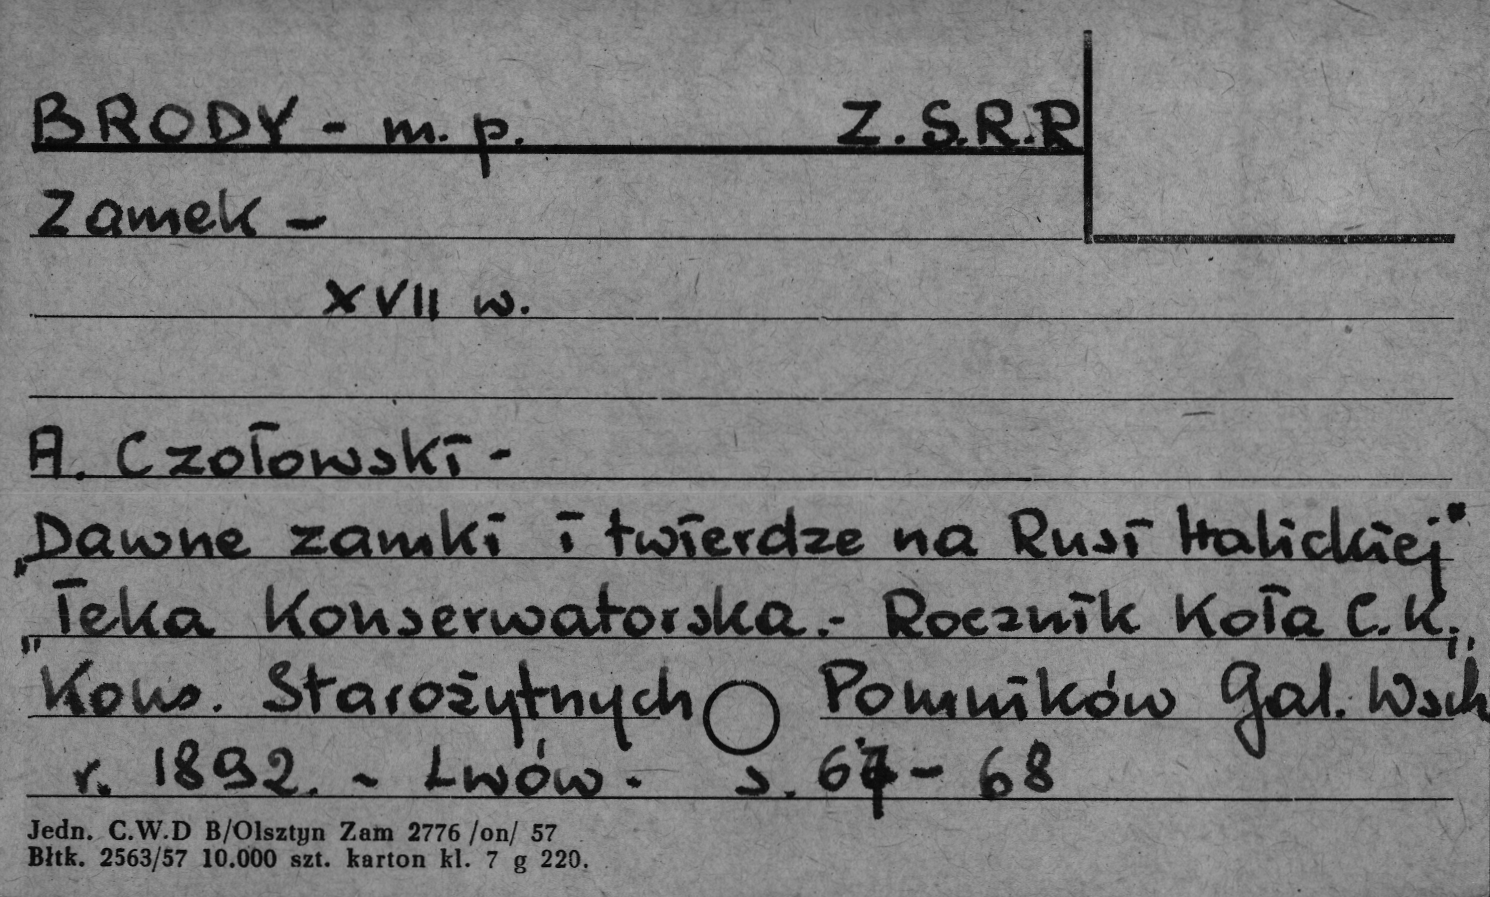 BRODY - m. p. Z.S.R.R
Zamek -
XVII w.
A. Czołowski -
„Dawne zamki i twierdze na Rusi Halickiej"
„Teka Konserwatorska.- Rocznik Koła C.K."
Kons. Starożytnych Pomników Gal. Wsch
r. 1892. - Lwów. s. 67 - 68
Jedn. C.W.D B/Olsztyn Zam 2776 /on/ 57
Błtk. 2563/57 10.000 szt. karton kl. 7 g 220.